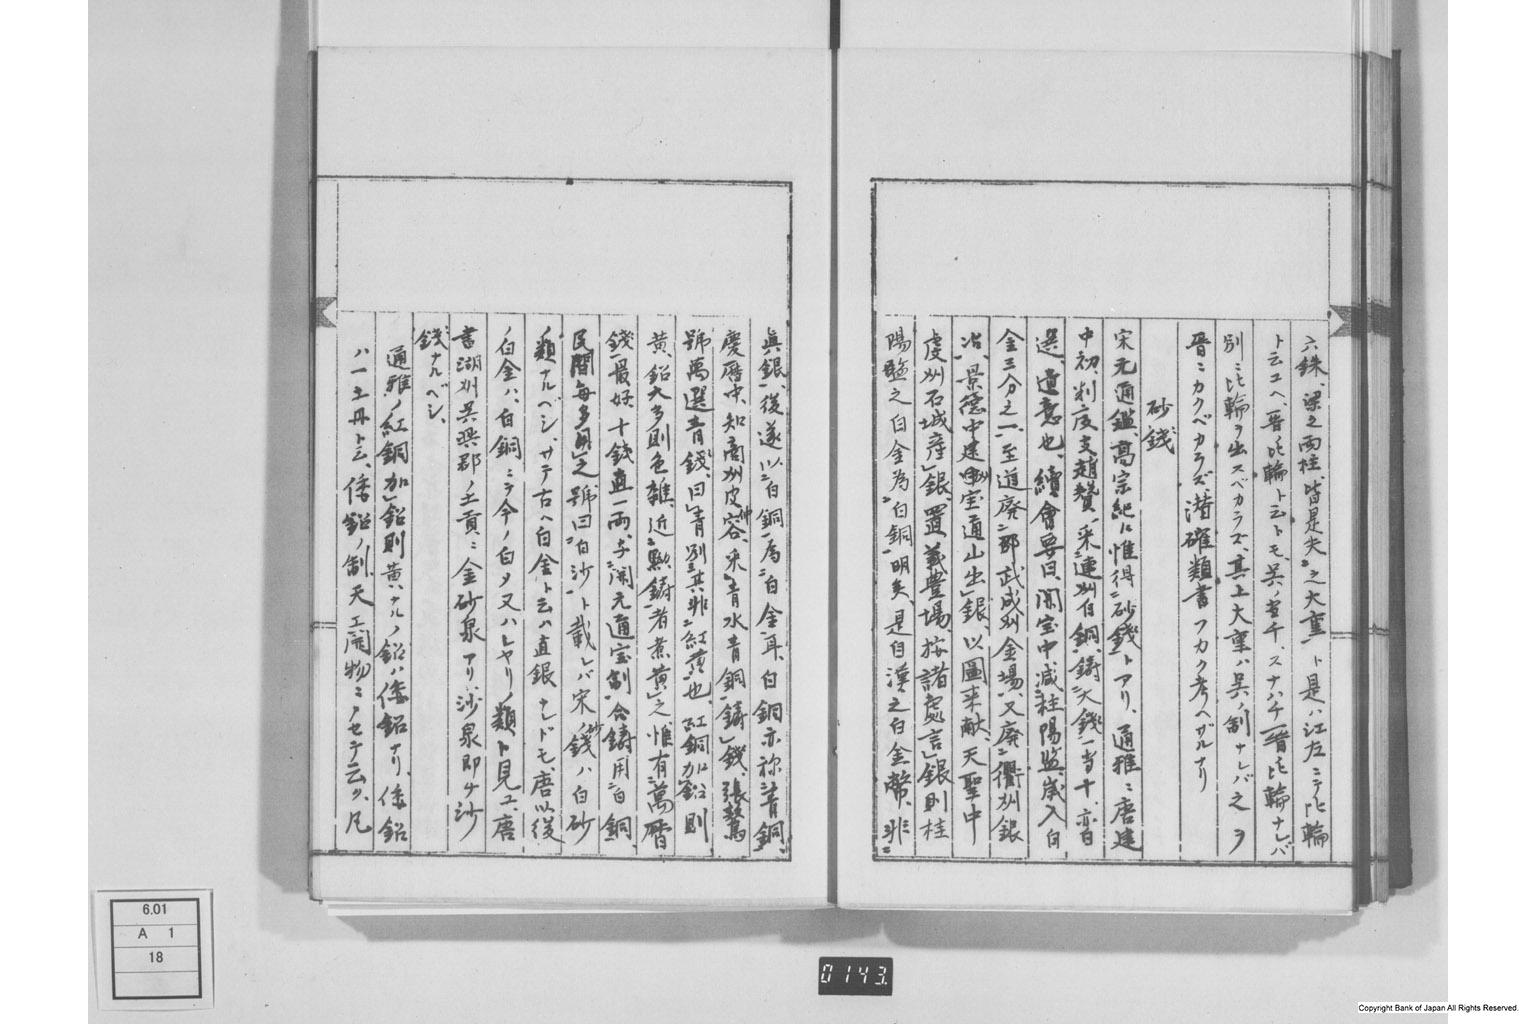 六銖、梁之両柱皆是夫之大重ト是ハ江左ニテ比輪
ト云エヘ晋比輪ト云トモ、呉ノ當千、スナハチ晋比輪ナレバ
別ニ比輪ヲ出スベカラズ、其上大重ハ呉ノ制ナレバ之ヲ
晋ニカクベカラズ潜確類書フカク考ヘザルナリ
砂錢
宋元通鑑高宗紀ニ惟得砂錢トアリ、通雅ニ唐建
中初、判度支趙賛、采連州白銅、鑄大錢一當十、亦白
選、遺意也、續會要曰、開宝中減桂陽監歳入白
金三分之一、至道廃邵武成州金場、又廃衢州銀
冶、景徳中連州宝通山出銀、以圖来献、天聖中
虔州石城産銀、置義豊場、按諸處言銀則桂
陽監之白金為白銅明矣、是自漢之白金幣、非
真銀、後遂以白銅為白金耳、白銅亦称青銅、
慶暦中、知商州皮仲容、采青水青銅鑄錢、張鷟
號萬選青錢、曰青別其非紅黄也、紅銅加鉛則
黄、鉛大多則色雜、近勲鑄者煮黄之惟有萬暦
錢最好、十錢直一両、与開元通宝制合鑄用白銅、
民間毎多用之號曰白沙ト載レバ宋ノ砂錢ハ白砂
ノ類ナルベシ、サテ古ヘ白金ト云ハ直銀ナレドモ、唐以後
ノ白金ハ、白銅ニヲ今ノ白メ又ハレヤリノ類ト見エ、唐
書湖州呉興郡ノ土貢ニ金砂泉アリ、沙泉即チ沙
錢ナルベシ、
通雅ノ紅銅加鉛則黄ナルノ鉛ハ倭鉛ナリ、倭鉛
ハ一云丹ト云、倭鉛ノ制、天工開物ニノセテ云ク、凡
6.01
A 1
18
0143
Copyright Bank of Japan All Rights Reserved.